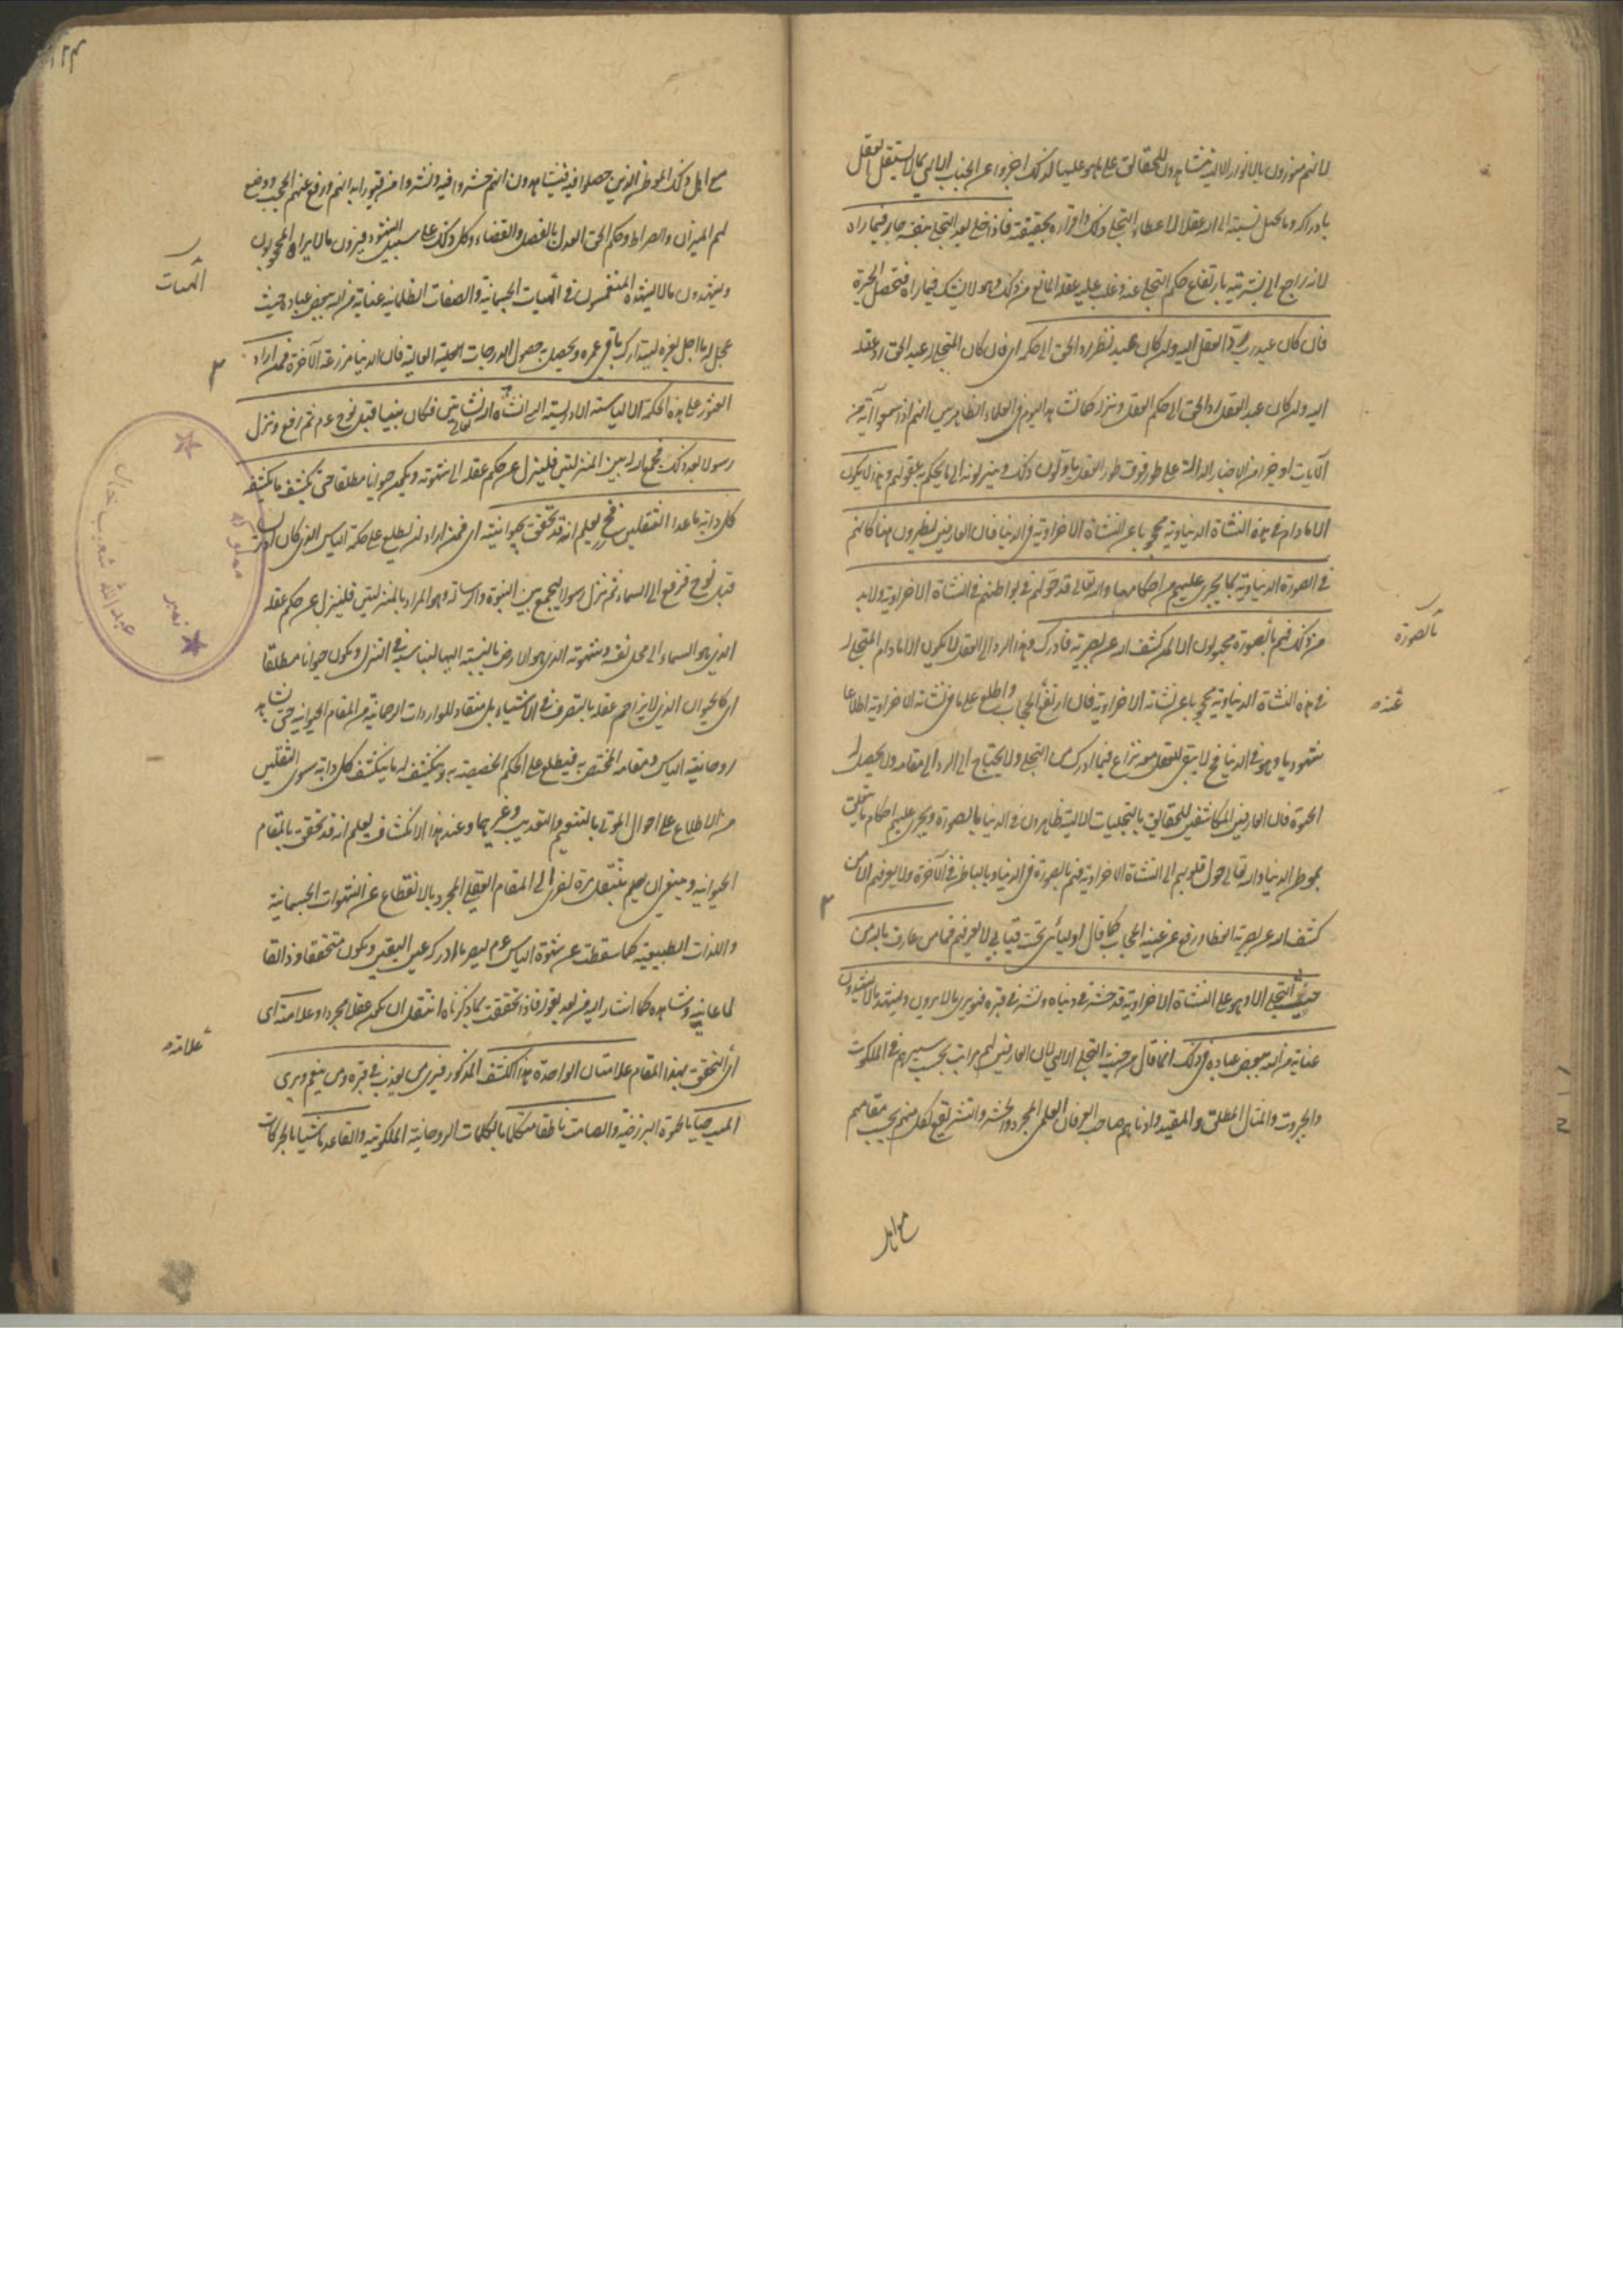 لانهم منورون بالانوار الالهية تشاهدون للحقائق على ما هو عليها لذلك اخبروا عن الجناب الالهي بما لا يستقل العقل
بادراكه وما يحيل نسبته الى الله عقلا الا عطاء التجلي ذلك واقراره بحقيقته فاذا خلي بعد التجلي بنفسه حار فيما راه
لانه راجع الى بشريته بارتفاع حكم التجلي عنه وغلب عليه عقله المانع من ذلك وهو لا يشك فيما راه فتحصل الحيرة
فان كان عبد رب رد العقل اليه وان كان عبد نظر رد الحق الى حكمه اي فان كان المتجلي له عبد الحق رد عقله
اليه وان كان عبد العقل رد الحق الى حكم العقل ونزله كما نشاهد اليوم في العلماء الظاهريين انهم اذا سمعوا آية من
الآيات او خبرا من الاخبار الدالة على طور فوق طور العقل ياولون ذلك وينزلونه الى ما يحكم به عقولهم وهذا لا يكون
الا ما دام في هذه النشاة الدنياوية محجوبا عن النشاة الاخراوية في الدنيا فان العارفين يظهرون هنا كانهم
في الصورة الدنياوية لما يجري عليهم من احكامها والله تعالى قد حولهم في بواطنهم في النشاة الاخراوية ولا بد
من ذلك فهم بالصورة مجهولون الا لمن كشف الله عن بصيرته فادرك وهذا الرد الى العقل لا يكون الا ما دام المتجلي له
في هذه النشاة الدنياوية محجوبا عن نشاته الاخراوية فان ارتفع الحجاب واطلع على ما في نشاته الاخراوية اطلاعا
شهوديا وهو في الدنيا فح لا يبقى للعقل معه نزاع فيما ادركه من التجلي ولا يحتاج الى الرد الى مقامه ولا يحصل له
الحيرة فان العارفين المكاشفين للحقائق بالتجليات الالهية ظاهرون في الدنيا بالصورة ويجري عليهم احكام ما يتعلق
بموطن الدنيا والله تعالى حول قلوبهم الى النشاة الاخراوية فهم بالصورة في الدنيا وبالباطن في الآخرة ولا يعرفهم الا من
كشف الله عن بصيرته الغطا ورفع عن عينه الحجاب كما قال اوليائي تحت قبابي لا يعرفهم غيري فما من عارف بالله من
حيث التجلي الالهي الا وهو على النشاة الاخراوية قد حشر في دنياه ونشر في قبره فهو يرى ما لا يرون ويشهد ما لا يشهدون
عناية من الله ببعض عباده في ذلك انما قال من حيث التجلي الالهي لان العارفين لهم مراتب بحسب سيرهم في الملكوت
والجبروت والمثال المطلق والمقيد وادناهم صاحب العرفان العلمي المجرد والحشر والنشر يقع لكل منهم بحسب مقامهم
مع اهل
بالصورة
عنه
مع اهل ذلك الموطن الذين حصلوا فيه فيشاهدون انهم حشروا فيه ونشروا من قبور ابدانهم ورفع عنهم الحجب ووضع
لهم الميزان والصراط وحكم الحق العدل بالفصل والقضاء وكل ذلك على سبيل الشهود فيرون ما لا يراه المحجوبون
ويشهدون ما لا يشهده المنغمسون في الهيآت الجسمانية والصفات الظلمانية عناية من الله ببعض عباده حيث
عجل له ما اجل لغيره ليتدارك باقي عمره ويحصل حصول الدرجات العلية العالية فان الدنيا مزرعة الآخرة فمن اراد
العثور على هذه الحكمة الالياسية الادريسية الذي انشاه الله نشاتين فكان نبيا قبل نوح عم ثم رفع ونزل
رسولا بعد ذلك فجمع الله له بين المنزلتين فلينزل عن حكم عقله الى شهوته ويكون حيوانا مطلقا حتى يكشف ما يكشفه
كل دابة ما عدا الثقلين فح يعلم انه قد تحقق بحيوانيته اي فمن اراد ان يطلع على حكمة الياس الذي كان ادريس
قبل نوح فرفع الى السماء ثم نزل رسولا ليجمع بين النبوة والرسالة وهو المراد بالمنزلتين فلينزل عن حكم عقله
الذي هو السماء الى محل نفسه وشهوته الذي هو الارض بالنسبة اليها ليناسبه في التنزل ويكون حيوانا مطلقا
اي كالحيوان الذي لا يزاحم عقله بالتصرف في الاشياء بل منقاد للواردات الرحمانية من المقام الحيوانية حتى يشاهد
روحانية الياس ومقامه المختص به فيطلع على الحكم المختصة به وينكشف له ما ينكشف كل دابة سوى الثقلين
من الاطلاع على احوال الموتى بالتنعيم والتعذيب وغيرهما وعند هذا الانكشاف يعلم انه قد تحقق بالمقام
الحيوانية وينبغي ان يعلم ينتقل مرة اخرى الى المقام العقلي المجرد بالانقطاع عن الشهوات الجسمانية
واللذات الطبيعية كما سقطت عن شهوة الياس عم ليصير ما ادركه عين اليقين ويكون متحققا وذائقا
لما عاينه وشاهده كما اشار اليه من بعد بقوله فاذا تحقق بما ذكرناه انتقل الى ان يكون عقلا مجردا وعلامته اي
اي المتحقق بهذا المقام علامتان الواحدة هذا الكشف المذكور فيرى من يعذب في قبره ومن ينعم ويرى
الميت حيا بالحيوة البرزخية والصامت ناطقا متكلما بالكلمات الروحانية الملكوتية والقاعد ماشيا بالحركات
الهيآت
علامته